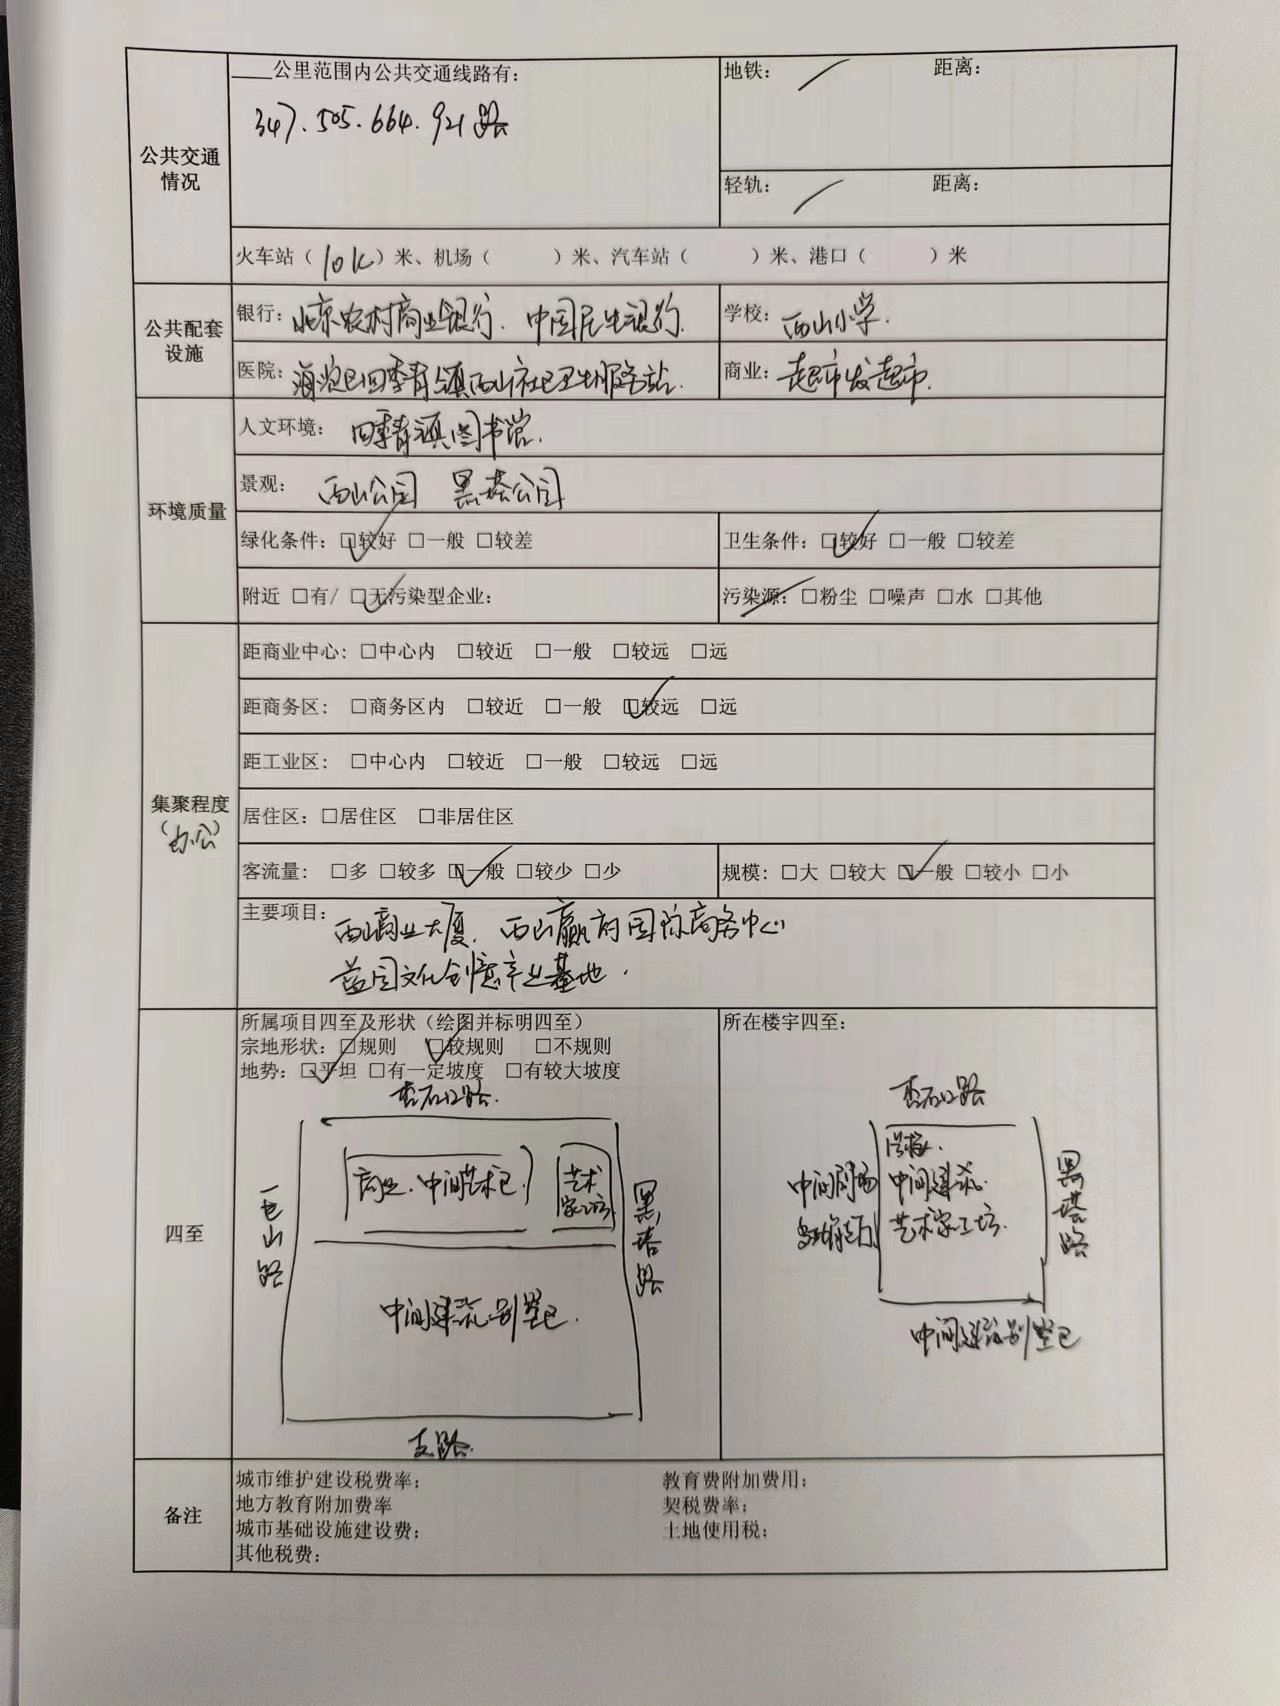 公共交通情况
____公里范围内公共交通线路有：
347.505.664.921路
地铁： ／ 距离：
轻轨： ／ 距离：
火车站（10K）米、机场（ ）米、汽车站（ ）米、港口（ ）米
公共配套设施
银行：北京农村商业银行、中国民生银行.
学校：西山小学.
医院：海淀区四季青镇西山社区卫生服务站.
商业：超市发超市.
环境质量
人文环境：四季青镇图书馆.
景观：西山公园 黑塔公园
绿化条件：☑较好 □一般 □较差
卫生条件：☑较好 □一般 □较差
附近 □有/ ☑无污染型企业：
污染源：□粉尘 □噪声 □水 □其他
集聚程度
（办公）
距商业中心：□中心内 □较近 □一般 □较远 □远
距商务区：□商务区内 □较近 □一般 ☑较远 □远
距工业区：□中心内 □较近 □一般 □较远 □远
居住区：□居住区 □非居住区
客流量：□多 □较多 ☑一般 □较少 □少
规模：□大 □较大 ☑一般 □较小 □小
主要项目：西山商业大厦、西山赢府国际商务中心
益园文化创意产业基地.
四至
所属项目四至及形状（绘图并标明四至）
宗地形状：□规则 ☑较规则 □不规则
地势：☑平坦 □有一定坡度 □有较大坡度
杏石口路.
商业、中间艺术区.
艺术家工坊
山路
黑塔路
中间建筑别墅区.
支路.
所在楼宇四至：
杏石口路
中间剧场
中间建筑.
艺术家工坊.
黑塔路
中间建筑别墅区
备注
城市维护建设税费率；
教育费附加费用；
地方教育附加费率
契税费率；
城市基础设施建设费；
土地使用税；
其他税费；